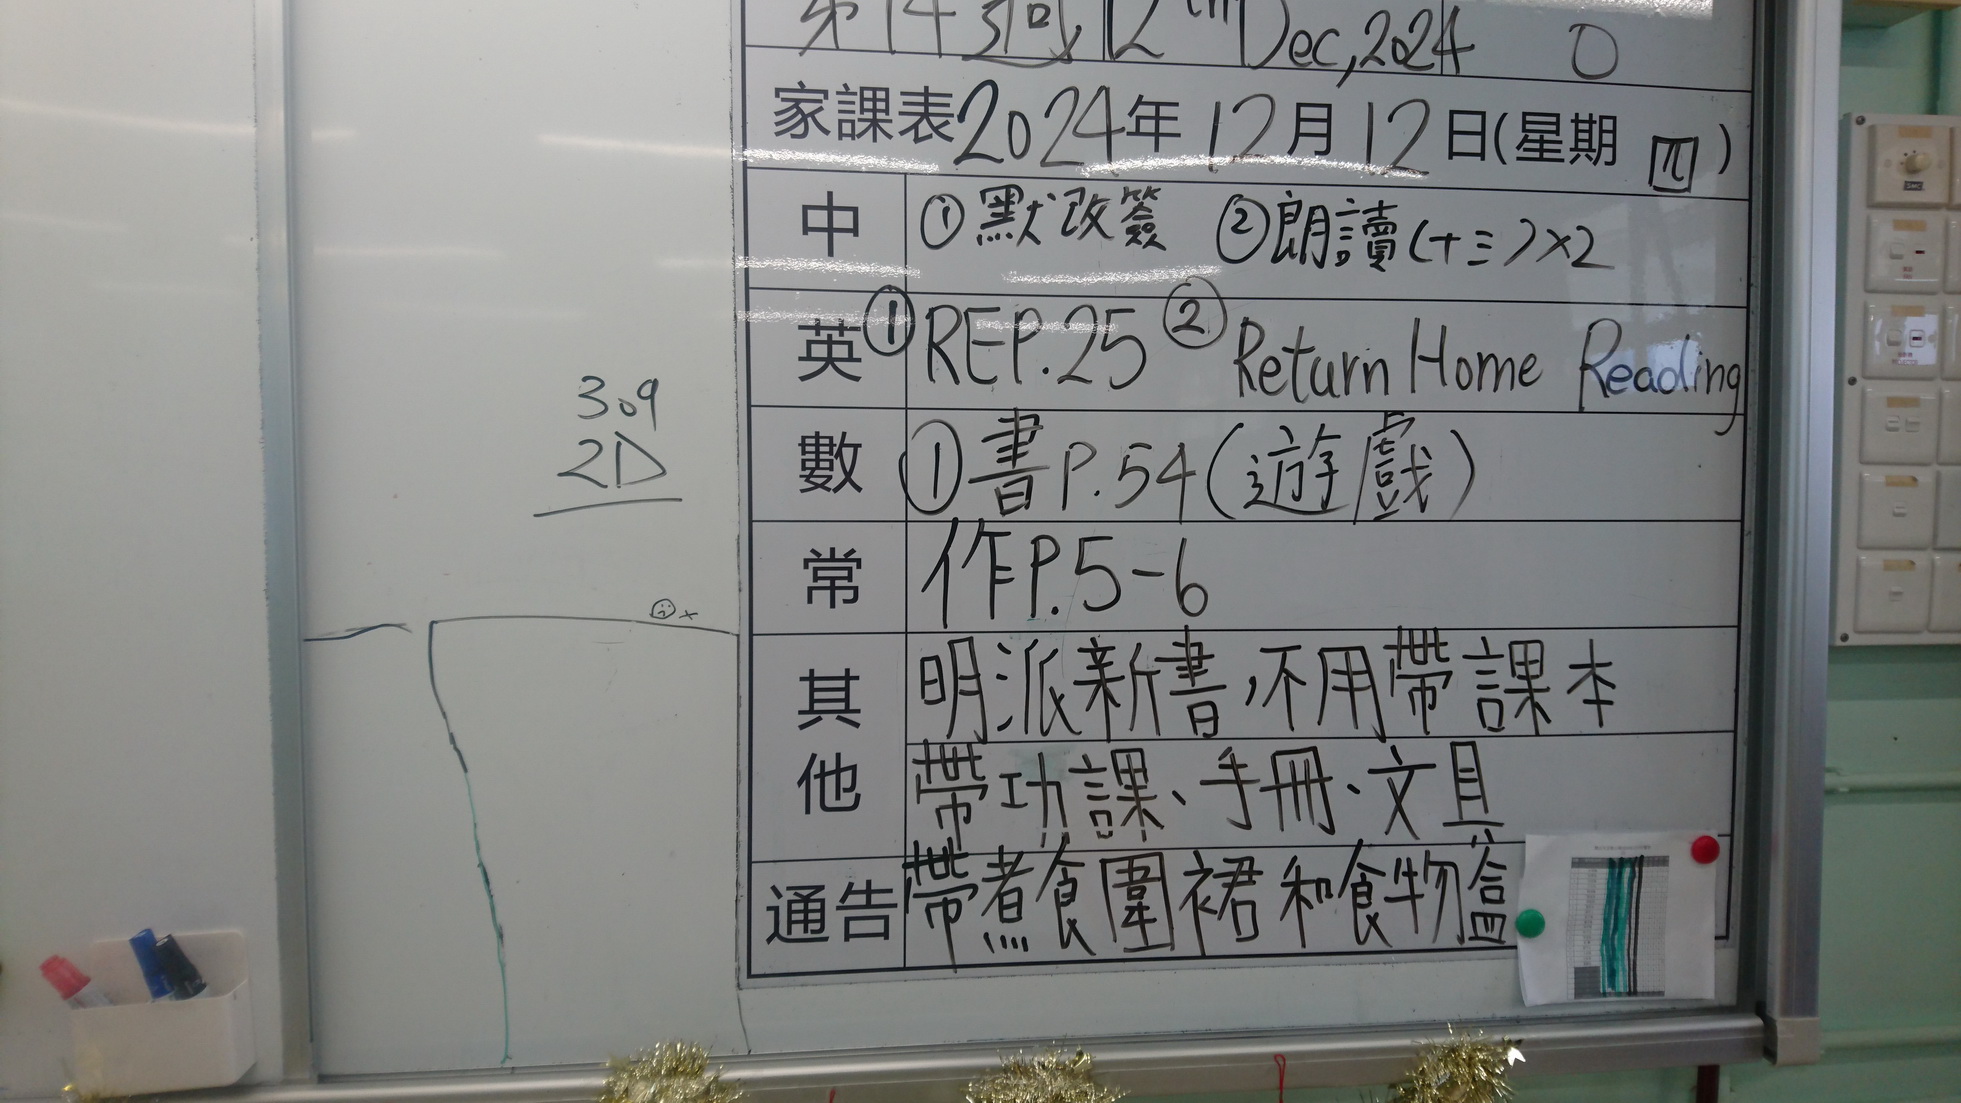 第14週 12th Dec, 2024 0
家課表2024年12月12日(星期四)
中 ①默改簽 ②朗讀(十三)×2
英 ①REP.25 ②Return Home Reading
309
2D
數 ①書P.54(遊戲)
常 作P.5-6
其他 明派新書,不用帶課本
帶功課、手冊、文具
通告 帶煮食圍裙和食物盒